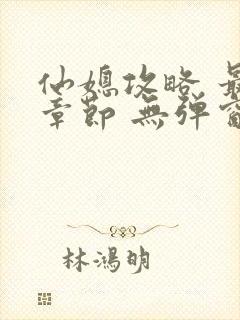 仙媳攻略 最
章節 無彈窗
林鴻明